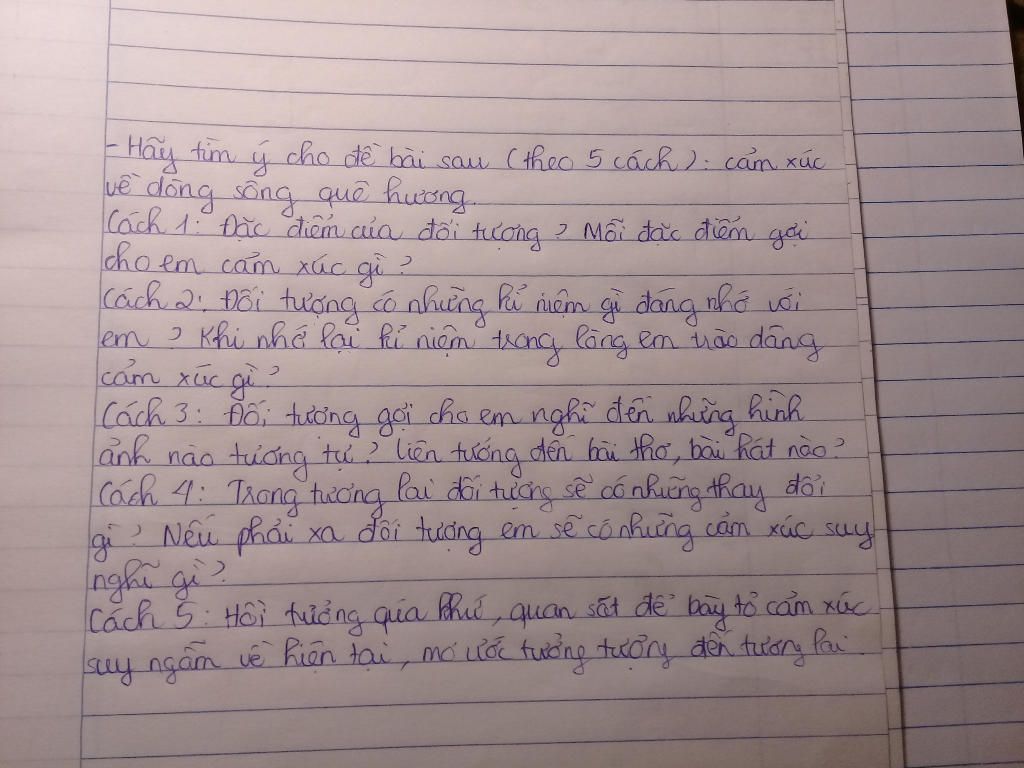 - Hãy tìm ý cho đề bài sau (theo 5 cách): cảm xúc
về dòng sông quê hương.
Cách 1: Đặc điểm của đối tượng? Mỗi đặc điểm gợi
cho em cảm xúc gì?
Cách 2: Đối tượng có những kỉ niệm gì đáng nhớ với
em? Khi nhớ lại kỉ niệm trong lòng em trào dâng
cảm xúc gì?
Cách 3: Đối tượng gợi cho em nghĩ đến những hình
ảnh nào tương tự? Liên tưởng đến bài thơ, bài hát nào?
Cách 4: Trong tương lai đối tượng sẽ có những thay đổi
gì? Nếu phải xa đối tượng em sẽ có những cảm xúc suy
nghĩ gì?
Cách 5: Hồi tưởng quá khứ, quan sát để bày tỏ cảm xúc
suy ngẫm về hiện tại, mơ ước tưởng tượng đến tương lai.